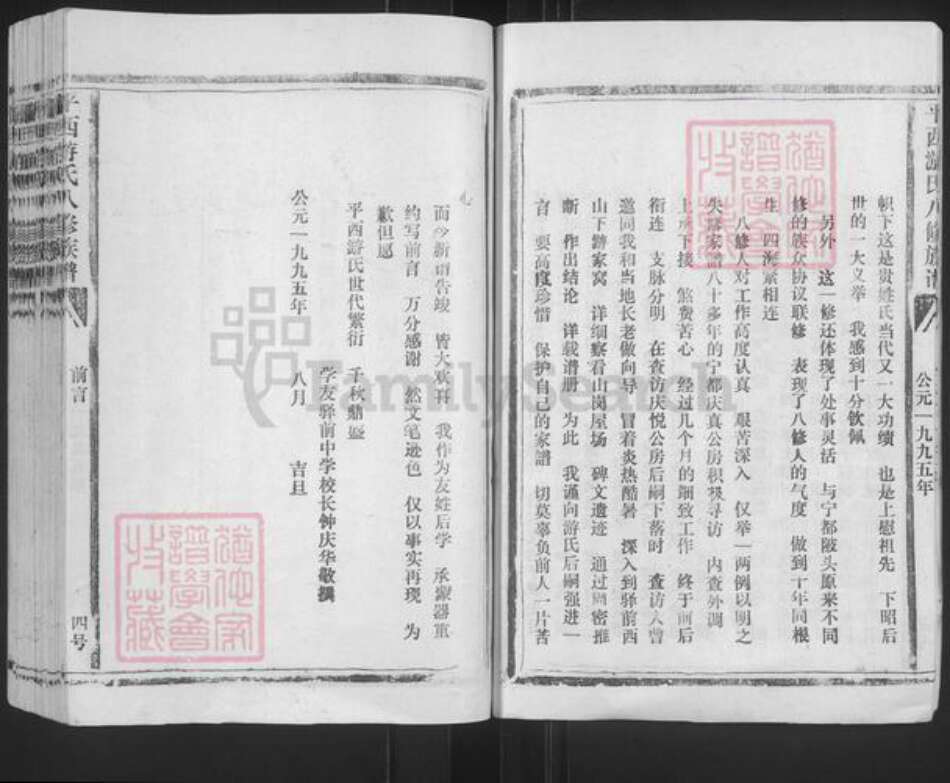 平西游氏八修族谱
公元一九九五年
帜下这是贵姓氏当代又一大功绩 也是上慰祖先 下昭后
世的一大义举 我感到十分钦佩
另外 这一修还体现了处事灵活 与宁都陂头原来不同
修的族众协议联修 表现了八修人的气度 做到十年同根
生 四海紧相连
八修人对工作高度认真 艰苦深入 仅举一两例以明之
失 家谱八十多年的宁都庆真公房积极寻访 内查外调
上承下接 煞费苦心 经过几个月的细致工作 终于前后
衔连 支脉分明 在查访庆悦公房后嗣下落时 查访人曾
邀同我和当地长老做向导 冒着炎热酷暑 深入到驿前西
山下踏家窝 详细察看山岗屋场 碑文遗迹 通过 密推
断 作出结论 详载谱册 为此 我谨向游氏后嗣强进一
言 要高度珍惜 保护自己的家谱 切莫辜负前人一片苦
心
而今新谱告竣 皆大欢喜 我作为友姓后学 承蒙器重
约写前言 万分感谢 然文笔逊色 仅以事实再现 为
歉但愿
平西游氏世代繁衍 千秋鼎盛
学友驿前中学校长钟庆华敬撰
公元一九九五年 八月 吉旦
平西游氏八修族谱
前言
四号
譜學會
收藏
FamilySearch